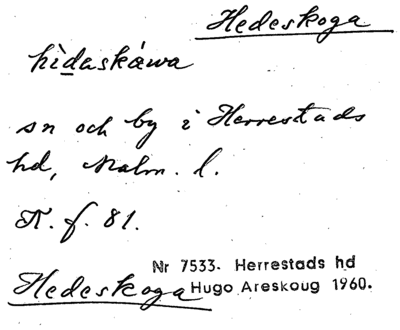 Hedeskoga
hìdaskáwa
sn och by i Herrestads
hd, Malm. l.
N. f. 81.
Nr 7533. Herrestads hd
Hedeskoga Hugo Areskoug 1960.